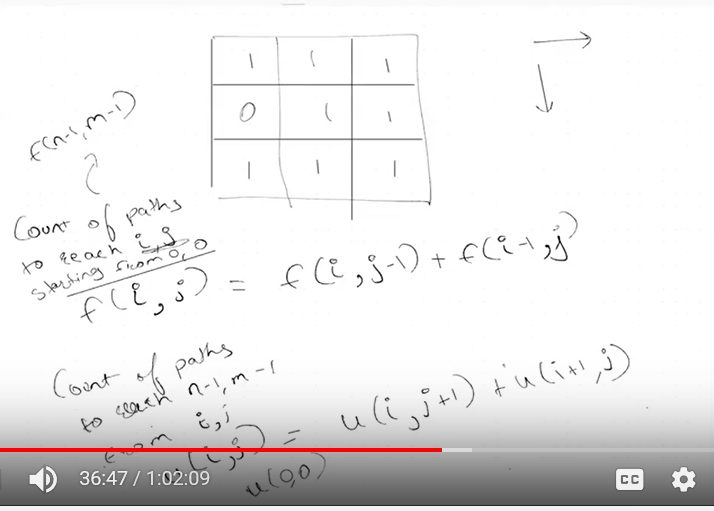 1 1 1
0 1 1
1 1 1
f(n-1, m-1)
Count of paths
to reach i, j
starting from 0, 0
f(i, j) = f(i, j-1) + f(i-1, j)
Count of paths
to reach n-1, m-1
from i, j
u(i, j) = u(i, j+1) + u(i+1, j)
u(0,0)
36:47 / 1:02:09
CC